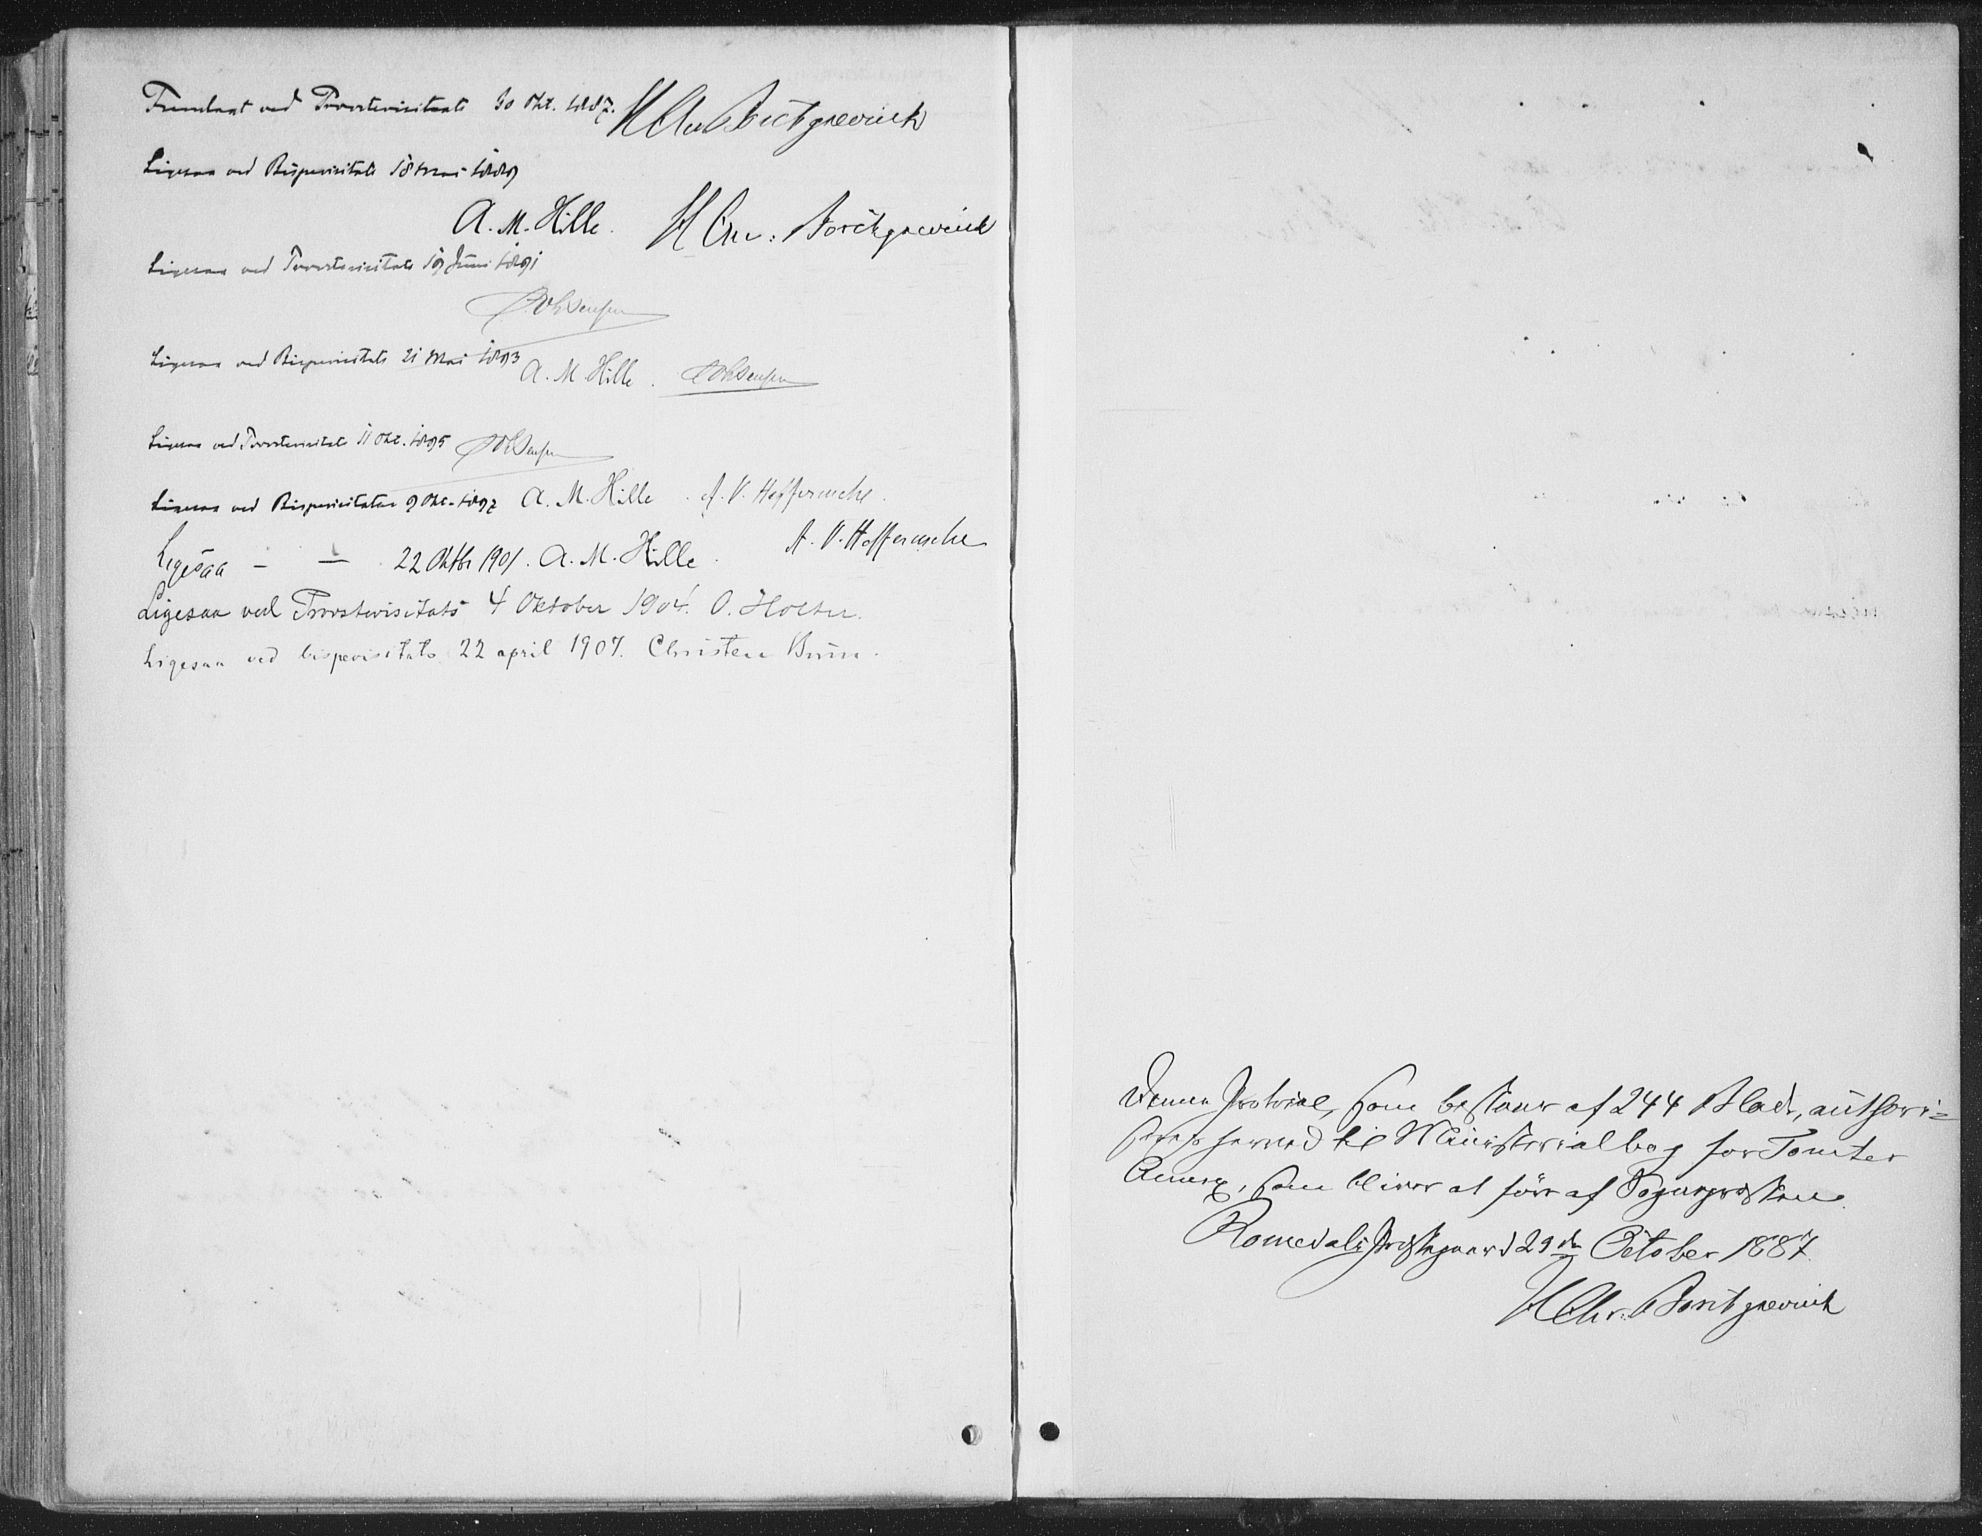 Fremlagt ved Provstevisitats 30 Okt. 1887. H Chr Borchgrevink
Ligesaa ved Bispevisitats 18 Mai 1889
A. M. Hille. H Chr: Borchgrevink
Ligesaa ved Provstevisitats 19 Juni 1891
Ligesaa ved Bispevisitats 21 Mai 1893 A. M. Hille.
Ligesaa ved Provstevisitats 11 Okt. 1895
Ligesaa ved Bispevisitatsen 9 Okt. 1897 A. M. Hille. A. V. Heffermehl.
Ligesaa — — 22 Oktbr 1901. A. M. Hille. A. V. Heffermehl
Ligesaa ved Provstevisitats 4 Oktober 1904. O. Holter.
Ligesaa ved bispevisitats 22 april 1907. Christen Brun.
Denne Protocol, som bestaar af 244 Blade, authori-
seres herved til Ministerialbog for Tomter
Annex, som bliver at føre af Sognepresten.
Romedals Prestegaard 29de October 1887.
H Chr: Borchgrevink